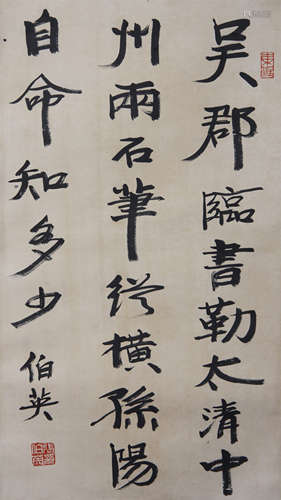 吴郡臨書勒太清中
州兩石筆縱橫孫陽
自命知多少
伯英